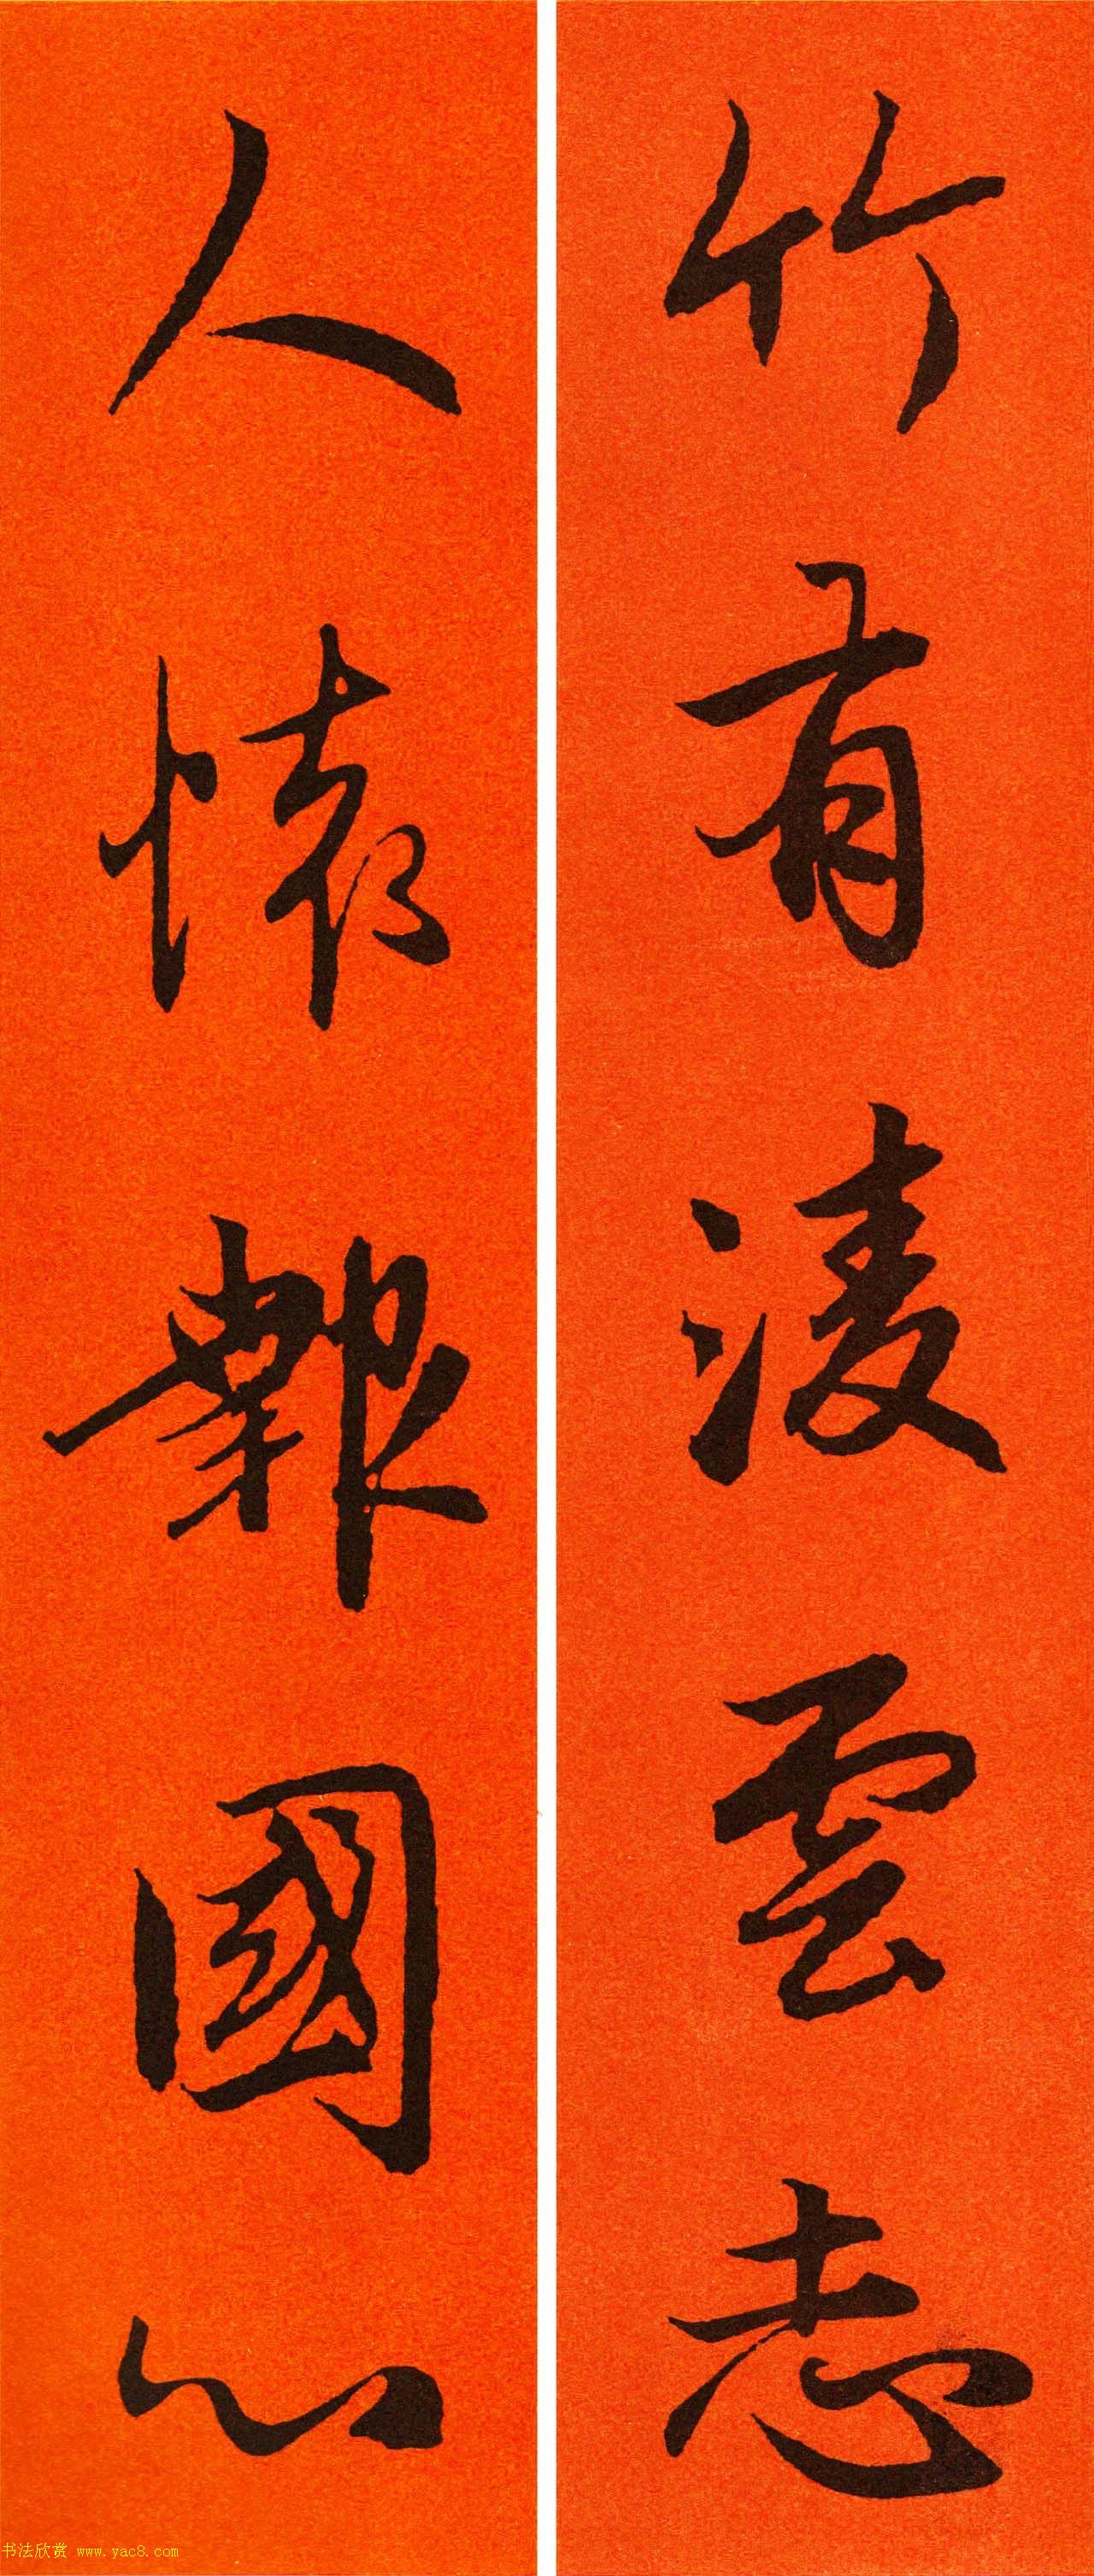 竹有淩雲志
人懷報國心
书法欣赏 www.yac8.com